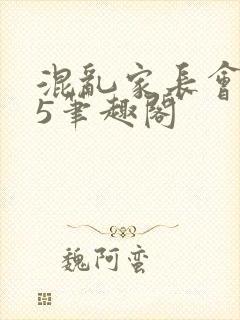 混亂家長會
5筆趣閣
魏阿蛮